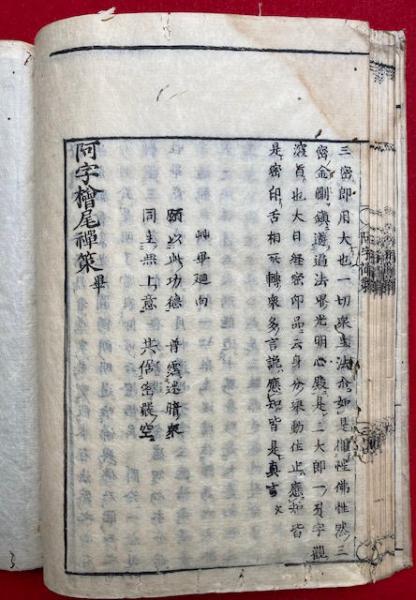 三密即用大也一切衆生法介如是 性佛性然三
密金剛 遍法界光明心殿是 大師一 字觀
也大日経密印品云身分舉動住止應知皆
是密印舌相所轉衆多言說應知皆是真言文
艸畢廻向
願以此功徳 普 迷暗衆
同生無上意 共 密嚴空
阿字檜尾禪策畢